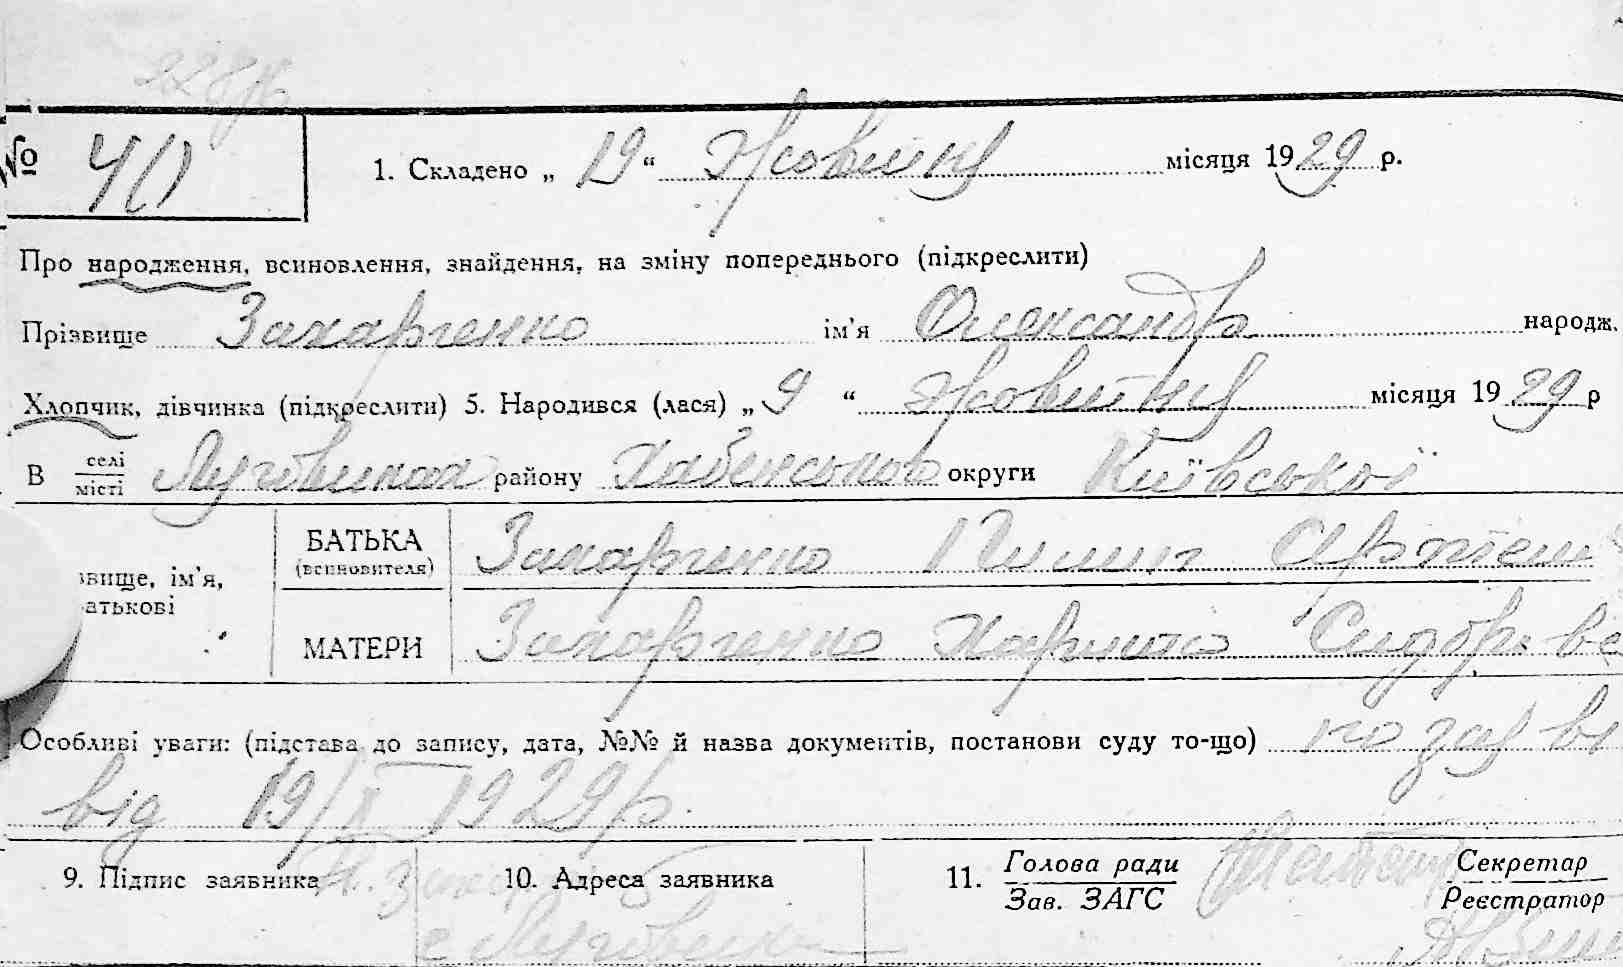 № 40 1. Складено „ 19 “ Жовтня місяця 1929 р.
Про народження, всиновлення, знайдення, на зміну попереднього (підкреслити)
Прізвище Захарченко ім'я Олександр народж.
Хлопчик, дівчинка (підкреслити) 5. Народився (лася) „ 9 “ Жовтня місяця 1929 р
В селі/місті району Хабенського округи Київської
звище, ім'я,
атькові
БАТЬКА (всиновителя) Захарченко Пилип Артем
МАТЕРИ Захарченко Харитина Сидорівс
Особливі уваги: (підстава до запису, дата, №№ й назва документів, постанови суду то-що) по заяві
від 19/X 1929 р.
9. Підпис заявника 10. Адреса заявника 11. Голова ради/Зав. ЗАГС Секретар/Реєстратор